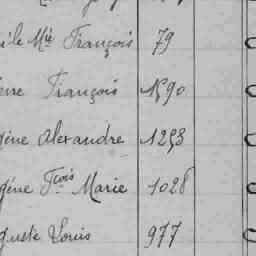 ile Mie François 79
erre François 1590
gène Alexandre 1253
gène Fcois Marie 1028
guste Louis 977